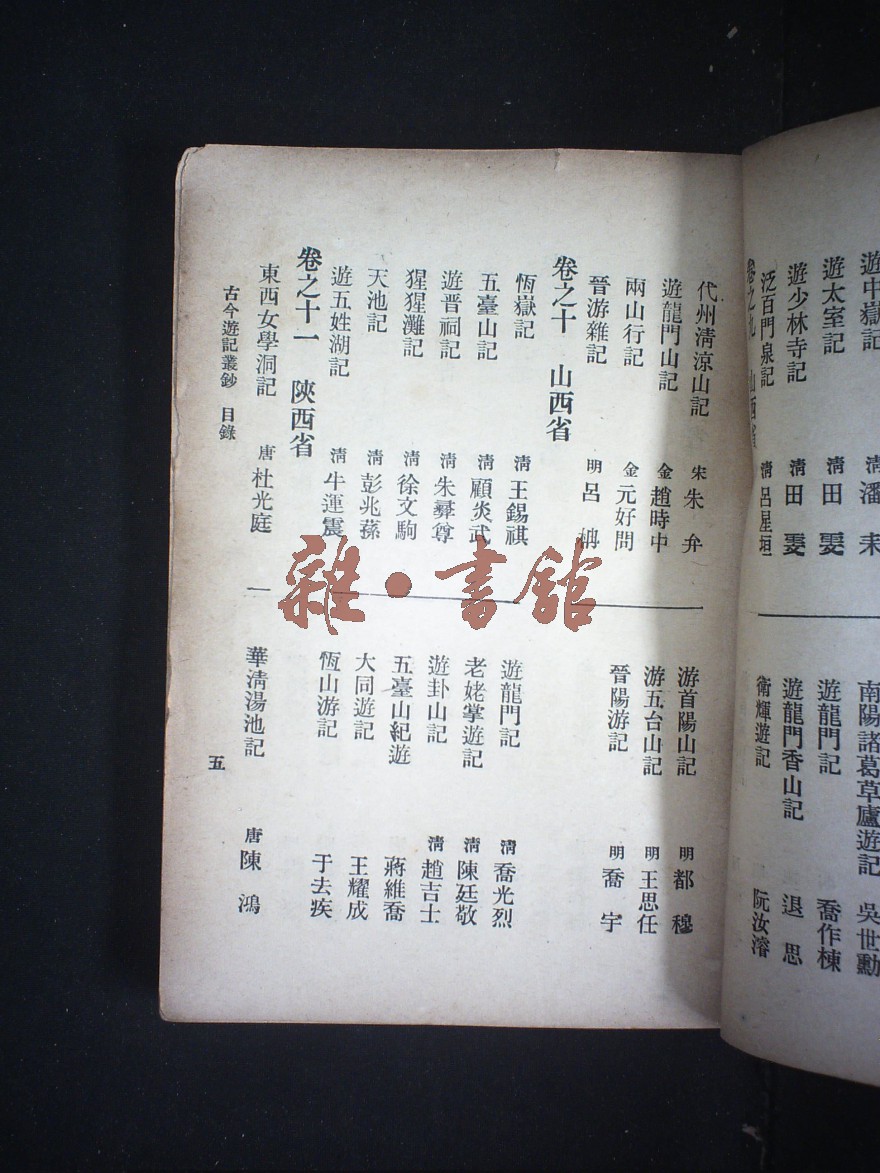 遊中嶽記 清 潘耒
遊太室記 清 田雯
遊少林寺記 清 田雯
泛百門泉記 清 呂星垣
南陽諸葛草廬遊記 吳世勳
遊龍門記 喬作棟
遊龍門香山記 退思
衛輝遊記 阮汝濬
卷之九 山西省
代州清涼山記 宋 朱弁
遊龍門山記 金 趙時中
兩山行記 金 元好問
晉游雜記 明 呂柟
游首陽山記 明 都穆
游五台山記 明 王思任
晉陽游記 明 喬宇
卷之十 山西省
恆嶽記 清 王錫祺
五臺山記 清 顧炎武
遊晋祠記 清 朱彝尊
猩猩灘記 清 徐文駒
天池記 清 彭兆蓀
遊五姓湖記 清 牛運震
遊龍門記 清 喬光烈
老姥掌遊記 清 陳廷敬
遊卦山記 清 趙吉士
五臺山紀遊 蔣維喬
大同遊記 王耀成
恆山游記 于去疾
卷之十一 陝西省
東西女學洞記 唐 杜光庭
華清湯池記 唐 陳鴻
古今遊記叢鈔 目錄
五
雜·書館